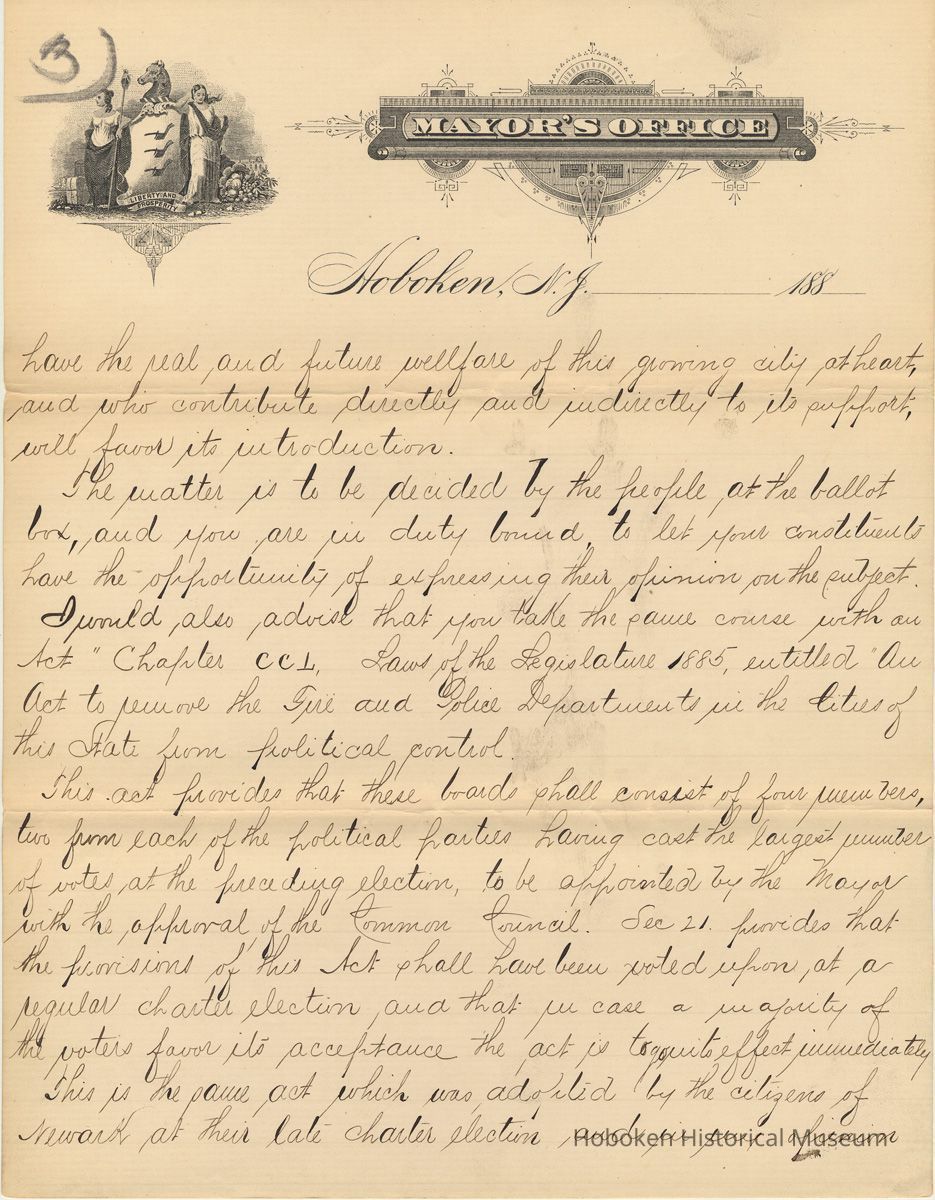 3)
LIBERTY AND
PROSPERITY
MAYOR'S OFFICE
Hoboken, N.J. 188
have the real and future wellfare of this growing city at heart,
and who contribute directly and indirectly to its support,
will favor its introduction.
The matter is to be decided by the people at the ballot
box, and you are in duty bound, to let your constituents
have the opportunity of expressing their opinion on the subject.
I would also advise that you take the same course with an
Act " Chapter CCL, Laws of the Legislature 1885, entitled "An
Act to remove the Fire and Police Departments in the Cities of
this State from political control.
This act provides that these boards shall consist of four members,
two from each of the political parties having cast the largest number
of votes at the preceding election, to be appointed by the Mayor
with the approval of the Common Council. Sec 21. provides that
the provisions of this Act shall have been voted upon at a
regular charter election and that in case a majority of
the voters favor its acceptance the act is to go into effect immediately
This is the same act which was adopted by the citizens of
Newark at their late charter election and in my opinion
Hoboken Historical Museum